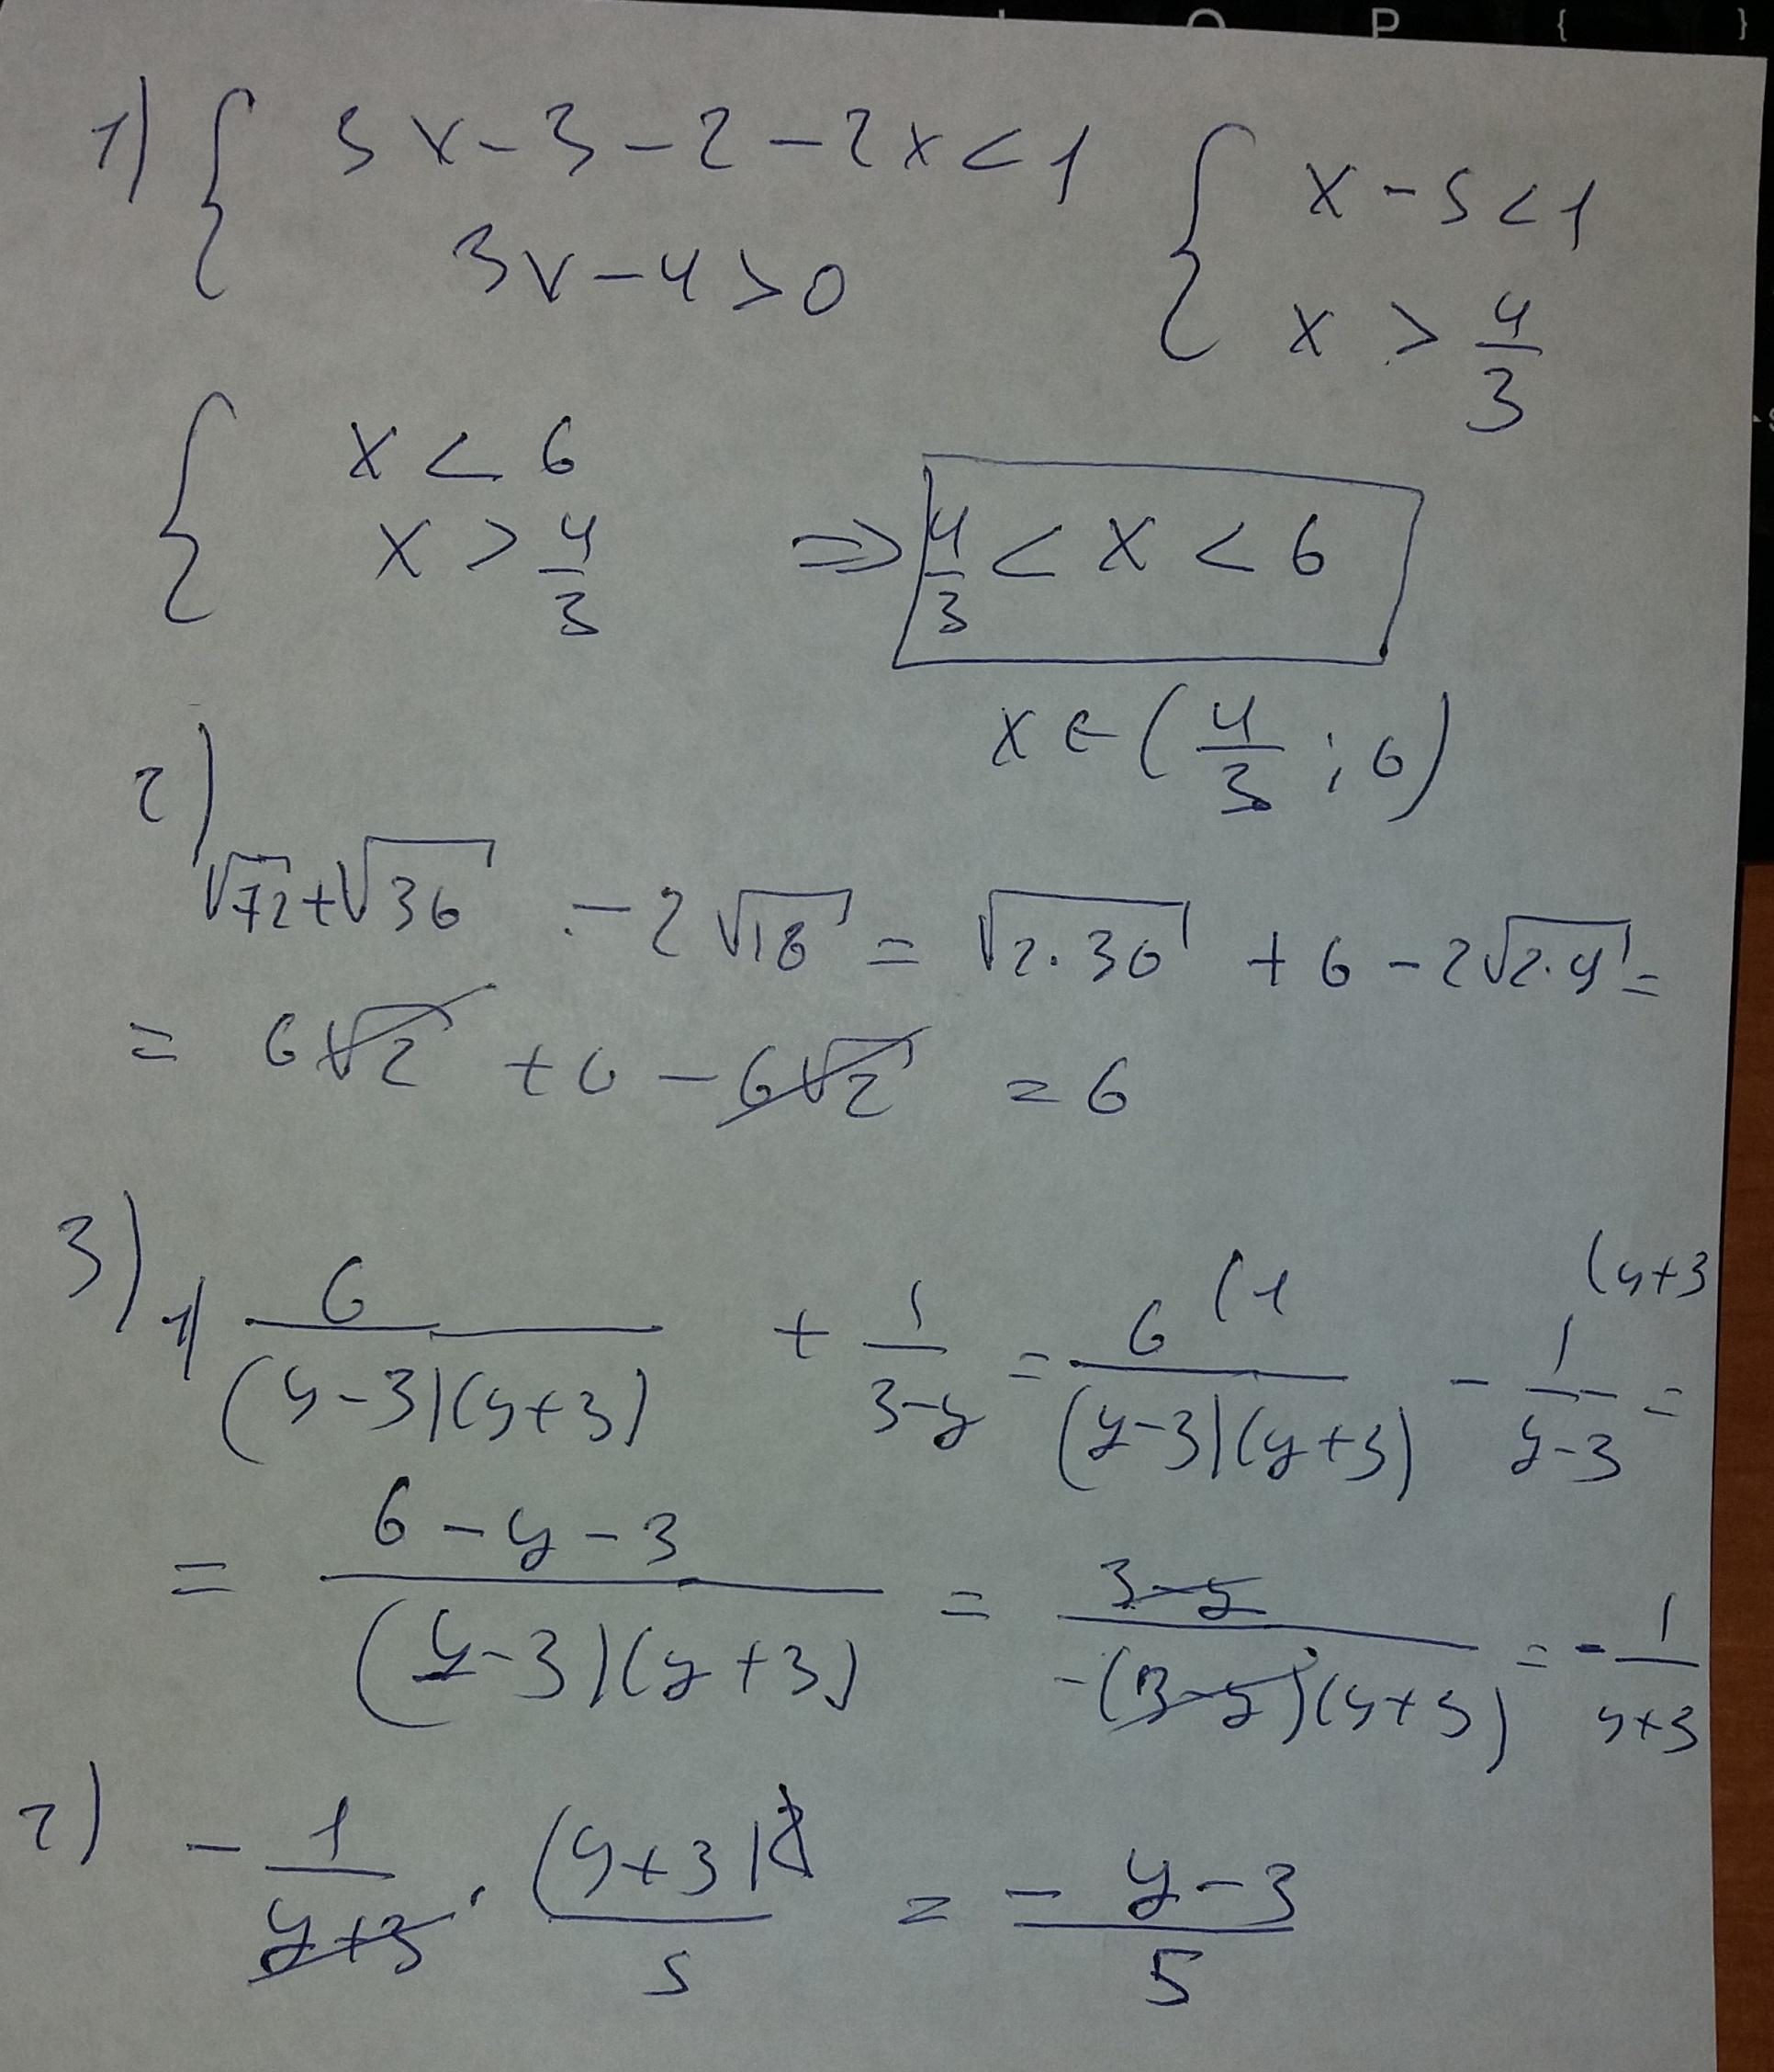 P { }
1) { 3x-3-2-2x<1 { x-5<1
3x-4>0 x > 4/3
{ x < 6
x > 4/3 ⇒ 4/3 < x < 6
x ∈ (4/3 ; 6)
2)
√72+√36 -2√18 = √2·36 + 6 - 2√2·9 =
= 6√2 + 6 - 6√2 = 6
3) 1) 6/(y-3)(y+3) + 1/3-y = 6 (1/(y-3)(y+3) - 1 (y+3/y-3 =
= 6-y-3/(y-3)(y+3) = 3-y/-(3-y)(y+3) = - 1/y+3
2) - 1/y+3 · (y+3)2/5 = - y-3/5